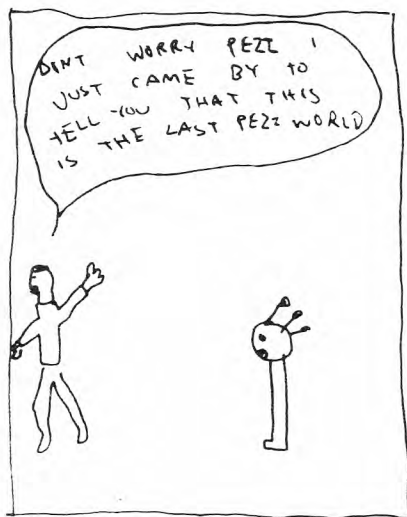 DONT WORRY PEZZ I
JUST CAME BY TO
TELL YOU THAT THIS
IS THE LAST PEZZ WORLD